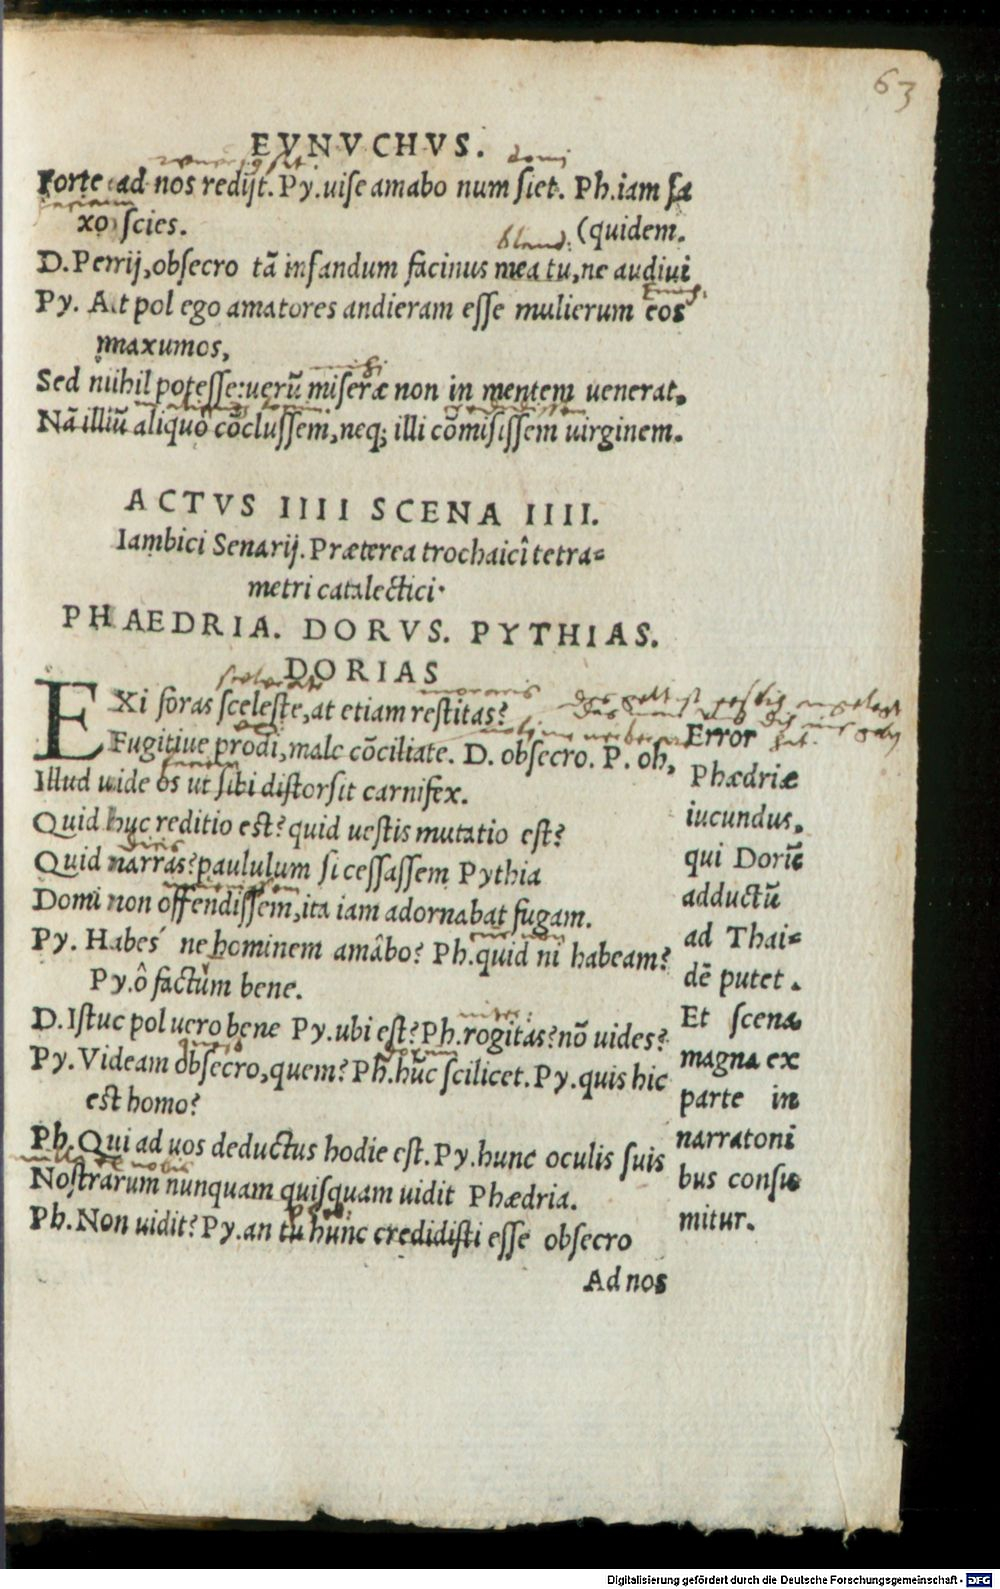 63
EVNVCHVS.
Forte ad nos redijt. Py. uise amabo num siet. Ph. iam fa
xo scies. (quidem.
D. Perrij, obsecro tã infandum facinus mea tu, ne audiui
Py. At pol ego amatores andieram esse mulierum eos
maxumos,
Sed nihil potesse: uerũ miseræ non in mentem uenerat.
Nã illũ aliquo cõclussem, neq; illi cõmisissem uirginem.
ACTVS IIII SCENA IIII.
Iambici Senarij. Præterea trochaici tetra=
metri catalectici.
PHAEDRIA. DORVS. PYTHIAS.
DORIAS
EXi foras sceleste, at etiam restitas?
Fugitiue prodi, male cõciliate. D. obsecro. P. oh,
Illud uide os ut sibi distorsit carnifex.
Quid huc reditio est? quid uestis mutatio est?
Quid narras? paululum si cessassem Pythia
Domi non offendissem, ita iam adornabat fugam.
Py. Habes ne hominem amâbo? Ph. quid ni habeam?
Py. ô factum bene.
D. Istuc pol uero bene Py. ubi est? Ph. rogitas? nõ uides?
Py. Videam obsecro, quem? Ph. hũc scilicet. Py. quis hic
est homo?
Ph. Qui ad uos deductus hodie est. Py. hunc oculis suis
Nostrarum nunquam quisquam uidit Phædria.
Ph. Non uidit? Py. an tu hunc credidisti esse obsecro
Ad nos
Error
Phædriæ
iucundus,
qui Dorũ
adductũ
ad Thai=
dẽ putet.
Et scena
magna ex
parte in
narratoni
bus consu
mitur.
Digitalisierung gefördert durch die Deutsche Forschungsgemeinschaft - DFG